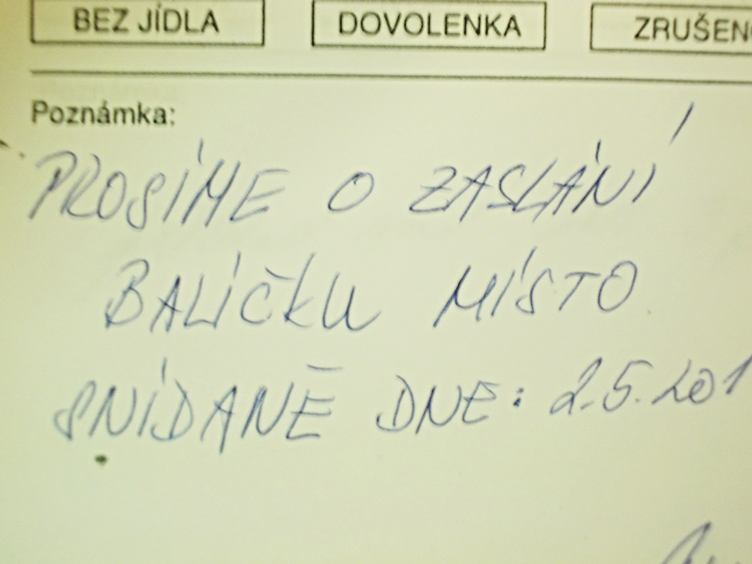 BEZ JÍDLA DOVOLENKA ZRUŠENO
Poznámka:
PROSÍME O ZASLÁNÍ
BALÍČKU MÍSTO
SNÍDANĚ DNE: 2.5.201